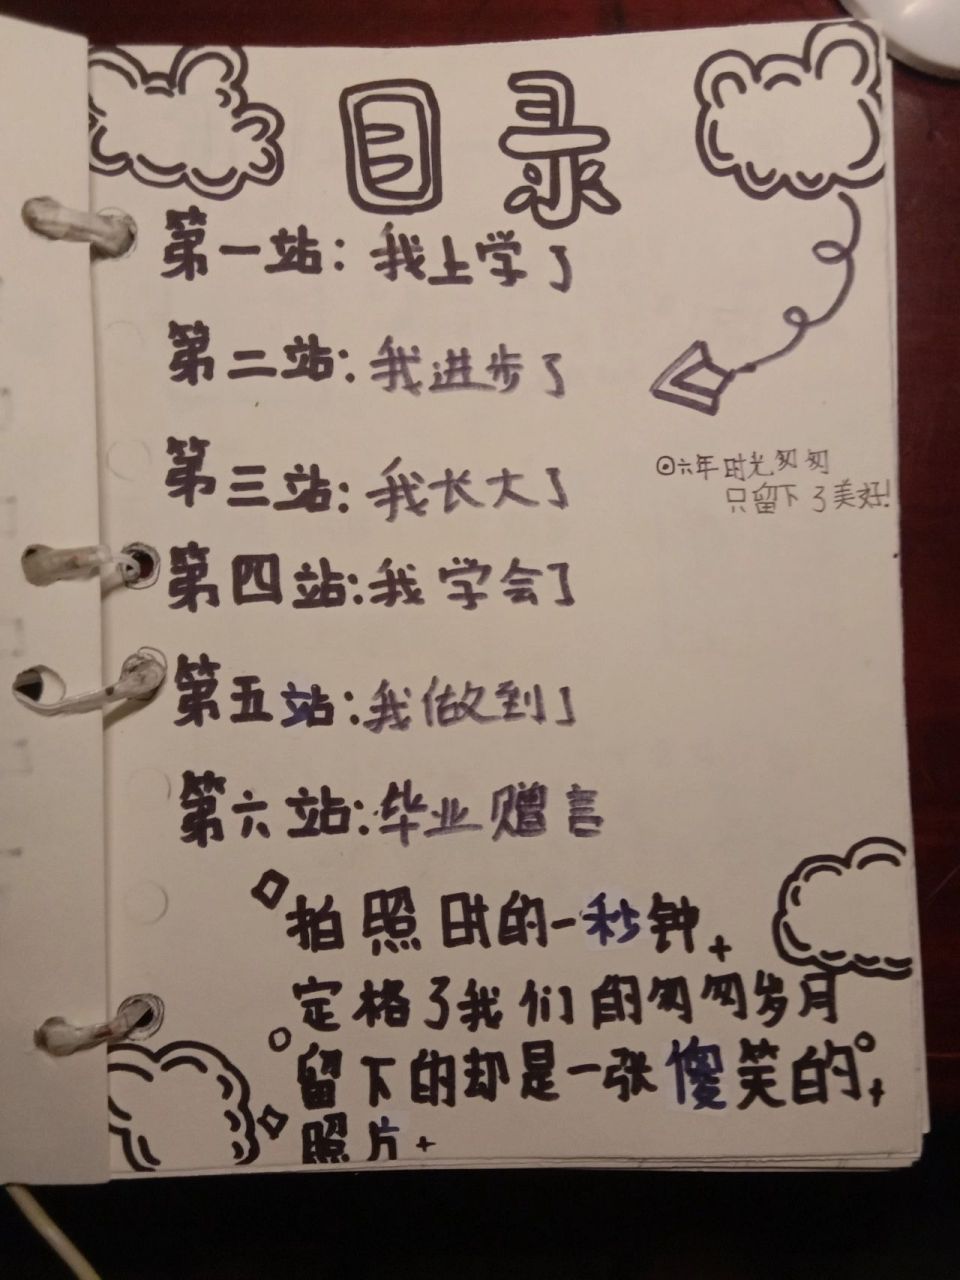 目录
第一站：我上学了
第二站：我进步了
第三站：我长大了
⊙六年时光匆匆
只留下了美好！
第四站：我学会了
第五站：我做到了
第六站：毕业赠言
拍照时的一秒钟
定格了我们的匆匆岁月
留下的却是一张傻笑的
照片